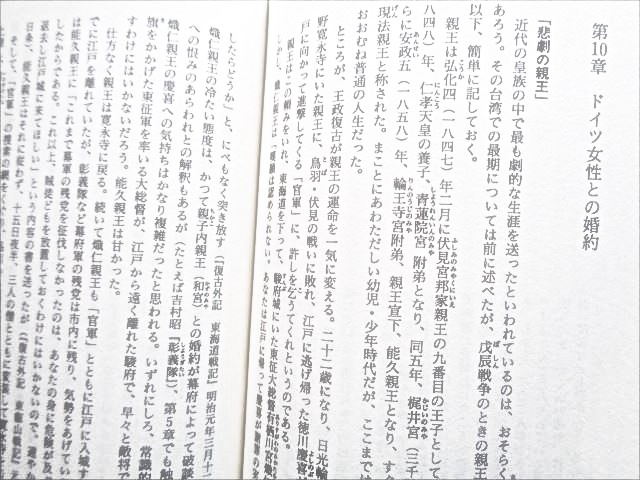 第10章　ドイツ女性との婚約
「悲劇の親王」
近代の皇族の中で最も劇的な生涯を送ったといわれているのは、おそらく
あろう。その台湾での最期については前に述べたが、戊辰戦争のときの親王
以下、簡単に記しておく。
親王は弘化四（一八四七）年二月に伏見宮邦家親王の九番目の王子として
八四八）年、仁孝天皇の養子、青蓮院宮附弟となり、同五年、梶井宮（三千
らに安政五（一八五八）年、輪王寺宮附弟、親王宣下、能久親王となり、すぐ
現法親王と称された。まことにあわただしい幼児・少年時代だが、ここまでは
おおむね普通の人生だった。
ところが、王政復古が親王の運命を一気に変える。二十二歳になり、日光輪
野寛永寺にいた親王に、鳥羽・伏見の戦いに敗れ、江戸に逃げ帰った徳川慶喜が
戸に向かって進撃してくる「官軍」に、許しを乞うてくれというのである。
親王はこの頼みをいれ、東海道を下って、駿府城にいた東征大総督有栖川宮熾
あなたは江戸に帰って慶喜が謝罪の
したらどうか」と、にべもなく突き放す（『復古外記　東海道戦記』明治元年三月十
熾仁親王の冷たい態度は、かつて親子内親王（和宮）との婚約が幕府によって破談
への恨みのあらわれとの解釈もあるが（たとえば吉村昭『彰義隊』）、第5章でも触
親王の慶喜への気持ちはかなり複雑だったと思われる。いずれにしろ、常識的
旗をかかげた東征軍を率いる大総督が、江戸から遠く離れた駿府で、早々と敵将で
すわけにはいかないだろう。能久親王は甘かった。
仕方なく親王は寛永寺に戻る。続いて熾仁親王も「官軍」とともに江戸に入城す
でに江戸を離れていたが、彰義隊など幕府軍の残党は市内に残り、気勢をあげてい
は能久親王に「これまで幕軍の残党を征伐しなかったのは、あなたの身に危険が及
したからである。これ以上、賊徒どもを放置しておくわけにはいかないので、速やか
退去し江戸城に来てほしい」という内容の書を送ったが（『復古外記　東叡山戦記』
日条）、能久親王はそれに応わず、十五日夜半、三人の僧とともに変装して
そして、「官軍」の捜索の網をくぐり